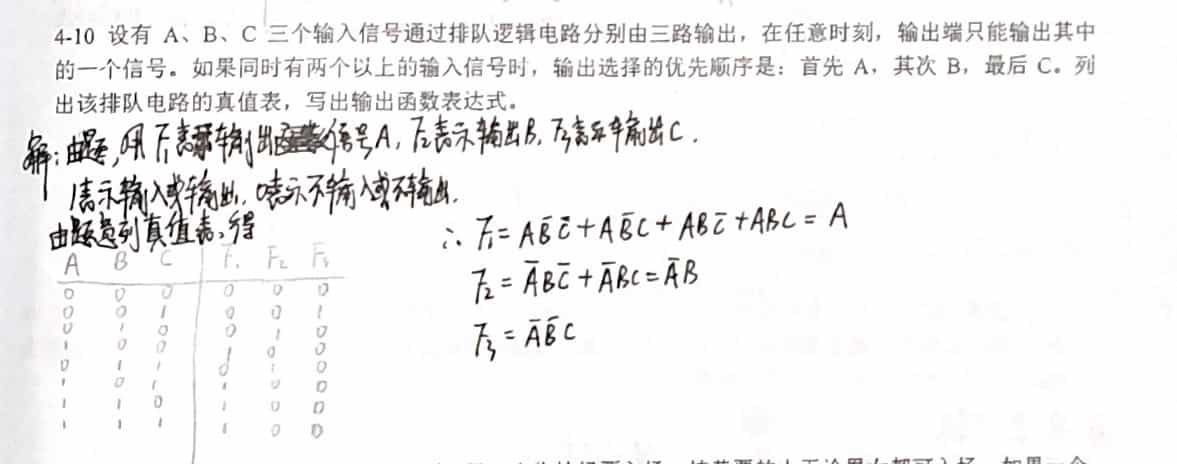 4-10 设有 A、B、C 三个输入信号通过排队逻辑电路分别由三路输出，在任意时刻，输出端只能输出其中
的一个信号。如果同时有两个以上的输入信号时，输出选择的优先顺序是：首先 A，其次 B，最后 C。列
出该排队电路的真值表，写出输出函数表达式。
解：由题，用 F₁表示输出信号A，F₂表示输出B，F₃表示输出C．
1表示输入或输出，0表示不输入或不输出．
由题意列真值表，得
A B C F₁ F₂ F₃
0 0 0 0 0 0
0 0 1 0 0 1
0 1 0 0 1 0
1 0 0 1 0 0
0 1 1 0 1 0
1 0 1 1 0 0
1 1 0 1 0 0
1 1 1 1 0 0
∴ F₁ = AB̅C̅ + AB̅C + ABC̅ + ABC = A
F₂ = A̅BC̅ + A̅BC = A̅B
F₃ = A̅B̅C